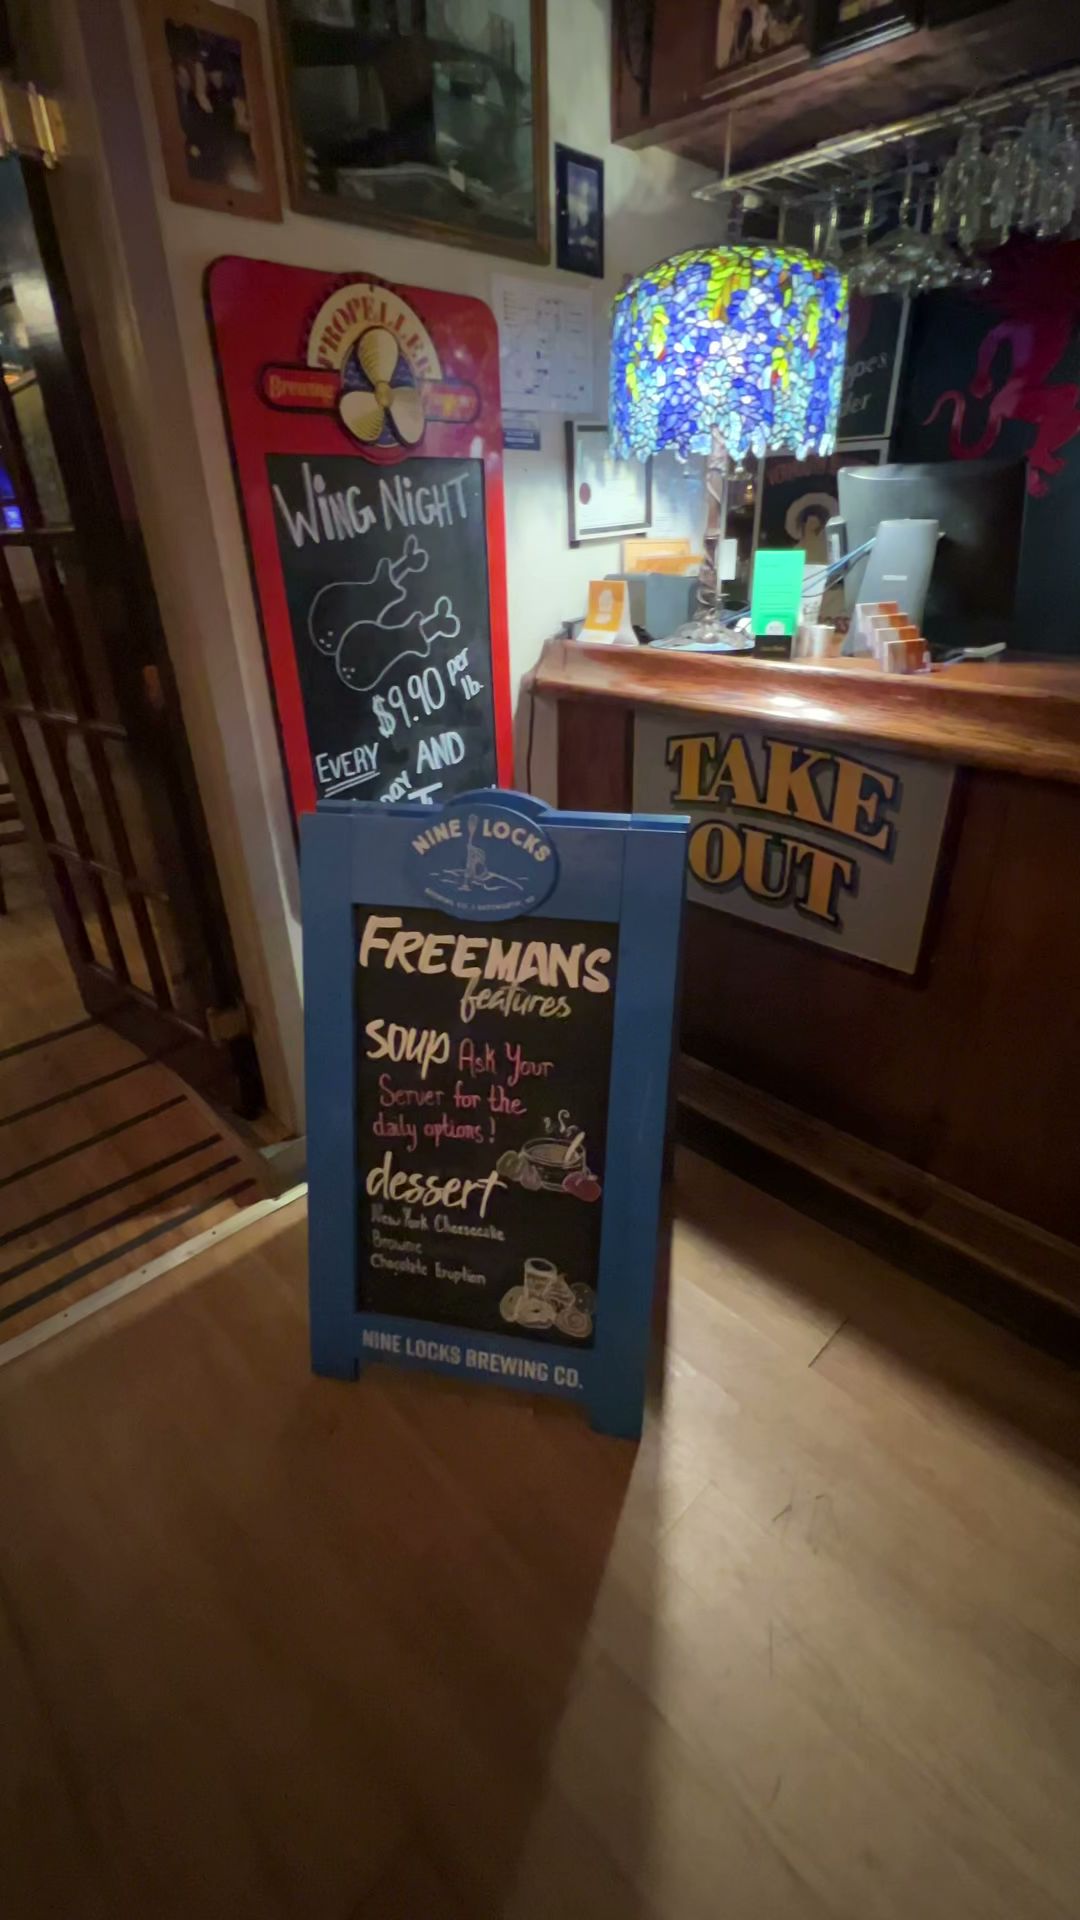 PROPELLER
Brewing
WING NIGHT
$9.90 per
lb.
EVERY AND
TAKE
OUT
NINE LOCKS
FREEMAN'S
features
SOUP Ask Your
Server for the
daily options!
dessert
New York Cheesecake
Brownie
Chocolate Eruption
NINE LOCKS BREWING CO.